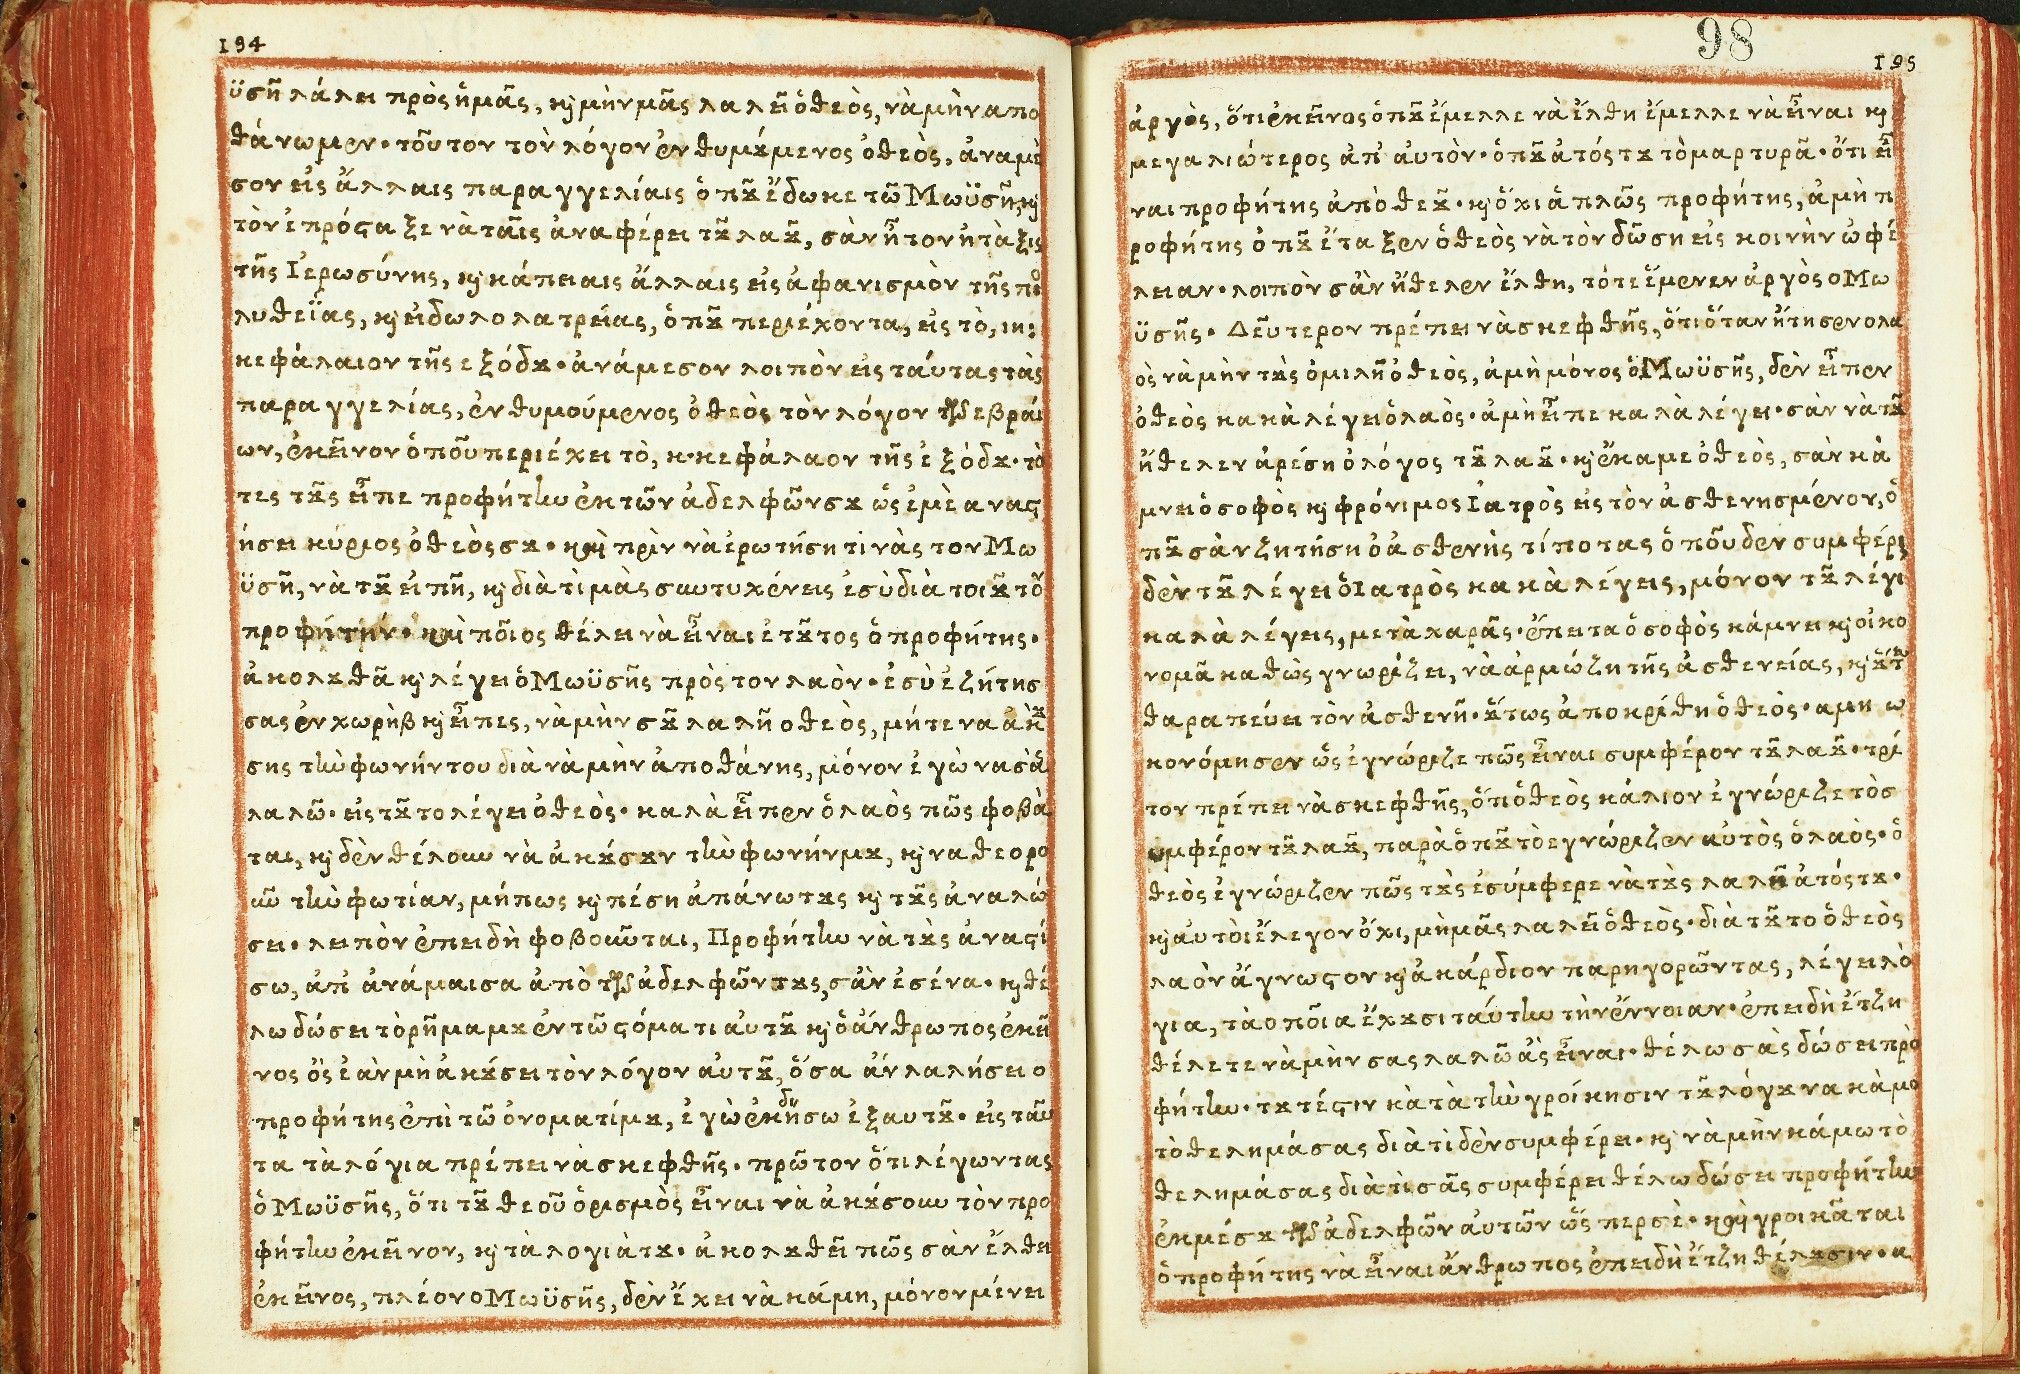 194
ϋσῆ λάλει πρὸς ἡμᾶς, κ μὴν μᾶς λαλεῖ ὁ θεὸς, νὰ μὴν απο
θάνωμεν· τοῦτον τὸν λόγον ἐνθυμȣ́μενος ὁ θεὸς, ἀναμὲ
σον εἰς ἄλλαις παραγγελίαις ὁπȣ̃ ἔδωκε τῶ Μωϋσῆ, κ
τὸν ἐπρόςαξε νὰ ταῖς ἀναφέρει τȣ̃ λαȣ̃, σὰν ἦτον ἡ τάξις
τῆς Ἱερωσύνης, κ κάπειαις ἄλλαις εἰς ἀφανισμὸν τῆς πο
λυθεΐας, κ εἰδωλολατρείας, ὁπȣ̃ περιέχονται, εἰς τὸ, ιη:
κεφάλαιον τῆς εξόδȣ· ἀνάμεσον λοιπὸν εἰς ταύτας τὰς
παραγγελίας, ἐνθυμούμενος ὁ θεὸς τὸν λόγον τῶν εβραί
ων, ἐκεῖνον ὁποῦ περιέχει τὸ, κ· κεφάλαον τῆς ἐξόδȣ· τὸ
τες τȣ̀ς εἶπε προφήτην ἐκ τῶν ἀδελφῶν σȣ ὡς ἐμὲ ανας
ήσει κύριος ὁ θεὸς σȣ· καὶ πρὶν νὰ ἐρωτήση τινὰς τον Μω
ϋσῆ, νὰ τȣ̃ εἰπῆ, κ διὰ τὶ μὰς σωτυχένεις ἐσὺ διὰ τοιȣ̃το
προφήτην· καὶ ποῖος θέλει νὰ εἶναι ἐτȣ̃τος ὁ προφήτης·
ἀκολȣθᾶ κ λέγει ὁ Μωϋσῆς πρὸς τον λαὸν· ἐσὺ ἐζήτησ
σας ἐν χωρὴβ κ εἶπες, νὰ μὴν σȣ̃ λαλῆ ο θεὸς, μήτε να ἀκȣ̀
σης τὴν φωνήν του διὰ νὰ μὴν ἀποθάνης, μόνον ἐγὼ να σὰ
λαλῶ· εἰς τȣ̃το λέγει ὁ θεὸς· καλὰ εἶπεν ὁ λαὸς πῶς φοβᾶ
ται, κ δὲν θέλουν νὰ ἀκȣ́σȣν τὴν φωνήν μȣ, κ να θεορο
ῦν τὴν φωτίαν, μήπως κ πέση ἀπάνω τȣς κ τȣ̀ς ἀναλώ
σει· λειπὸν ἐπειδὴ φοβοῦνται, Προφήτην νὰ τȣ̀ς ἀναςί
σω, ἀπ' ἀνάμαισα ἀπὸ τῶν ἀδελφῶν τȣς, σὰν ἐσένα· κ θέ
λω δώσει τὸ ρῆμα μȣ ἐν τῶ ςόματι αὐτȣ̃ κ ὁ ἄνθρωπος ἐκεῖ
νος ὃς ἐὰν μὴ ἀκȣ́σει τὸν λόγον αὐτȣ̃, ὅσα ἀν λαλήσει ο
προφήτης ἐπὶ τῶ ὀνοματί μȣ, ἐγὼ ἐκδήσω ἐξ αυτȣ̃· εἰς ταῦ
τα τὰ λόγια πρέπει νὰ σκεφθῆς· πρῶτον ὅτι λέγωντας
ὁ Μωϋσῆς, ὅτι τȣ̃ θεοῦ ὁρισμὸς εἶναι νὰ ἀκȣ́σουν τὸν προ
φήτην ἐκεῖνον, κ τὰ λογιὰ τȣ· ἀκολȣθεῖ πῶς σὰν ἔλθει
ἐκεῖνος, πλέον ο Μωϋσῆς, δὲν ἔχει νὰ κάμη, μόνον μένει
98
195
ἀργὸς, ὅτι ἐκεῖνος ὁπȣ̃ ἔμελλε νὰ ἔλθη ἔμελλε νὰ εἶναι κ
μεγαλιώτερος ἀπ' αὐτὸν· ὁπȣ̃ ἀτός τȣ τὸ μαρτυρᾶ· ὅτι εἶ
ναι προφήτης ἀπὸ θεȣ̃· κ ὄχι ἁπλῶς προφήτης, ἀμὴ π
ροφήτης ὁπȣ̃ ἔταξεν ὁ θεὸς νὰ τὸν δῶση εἰς κοινὴν ὠφέ
λειαν· λοιπὸν σἀν ἤθελεν ἔλθη, τότε ἔμενεν ἀργὸς ο Μω
ϋσῆς· Δεῦτερον πρέπει νὰ σκεφθῆς, ὅτι ὅταν ἤτησεν ο λα
ὸς νὰ μὴν τȣ̀ς ὁμιλῆ ὁ θεὸς, ἀμὴ μόνος ὁ Μωϋσῆς, δὲν εἶπεν
ὁ θεὸς κακὰ λέγει ὁ λαὸς· ἀμὴ εἶπε καλὰ λέγει· σὰν νὰ τȣ̃
ἤθελεν ἀρέση ὁ λόγος τȣ̃ λαȣ̃· κ ἔκαμε ὁ θεὸς, σὰν κά
μνει ὁ σοφὸς κ φρόνιμος Ἰατρὸς εἰς τὸν ἀσθενησμένον, ὁ
πȣ̃ σὰν ζητήση ὁ ἀσθενὴς τίποτας ὁποῦ δεν συμφέρι,
δὲν τȣ̃ λέγει ὁ Ἰατρὸς κακὰ λέγεις, μόνον τȣ̃ λέγι
καλὰ λέγεις, μετὰ χαρᾶς· ἔπειτα ὁ σοφὸς κάμνει κ οἰκο
νομᾶ καθὼς γνωρίζει, νὰ ἁρμώζη τῆς ἀσθενείας, κ ȣ̓́τω
θαραπεύει τὸν ἀσθενῆ· ȣ̓́τως ἀποκρίθη ὁ θεὸς· αμη ω
κονόμησεν ὡς ἐγνώριζε πῶς εἶναι συμφέρον τȣ̃ λαȣ̃· τρί
τον πρέπει νὰ σκεφθῆς, ὁπ' ὁ θεὸς κάλιον ἐγνώριζε τὸ σ
υμφέρον τȣ̃ λαȣ̃, παρὰ ὁπȣ̃ τὸ εγνώριζεν αυτὸς ὁ λαὸς· ὁ
θεὸς ἐγνώριζεν πῶς τȣ̀ς ἐσύμφερε νὰ τȣ̀ς λαλῆ ἀτός τȣ·
κ αυτὸι ἔλεγον ὄχι, μὴ μᾶς λαλεῖ ὁ θεὸς· διὰ τȣ̃το ὁ θεὸς
λαὸν ἄγνωςον κ ἀκάρδιον παρηγορῶντας, λέγει λὸ
για, τὰ οποῖα ἔχȣσι ταύτην τὴν ἔννοιαν· ἐπειδὴ ἔτζη
θέλετε νὰ μὴν σας λαλῶ ἀς εἶναι· θέλω σὰς δώσει πρὸ
φήτην· τȣτέςιν κὰτὰ τὴν γροίκησιν τȣ̃ λόγȣ να κὰμο
τὸ θελημά σας διὰ τὶ δὲν συμφέρει· κ νὰ μὴν κάμω τὸ
θελημά σας διὰτὶ σᾶς συμφέρει θέλω δώσει προφήτην
ἐκ μέσȣ τῶν ἀδελφῶν ἀυτῶν ὥς περ σὲ· καὶ γροικᾶται
ὁ προφήτης νὰ εἶναι ἄνθρωπος ἐπειδὴ ἔτζη θέλȣσιν· α